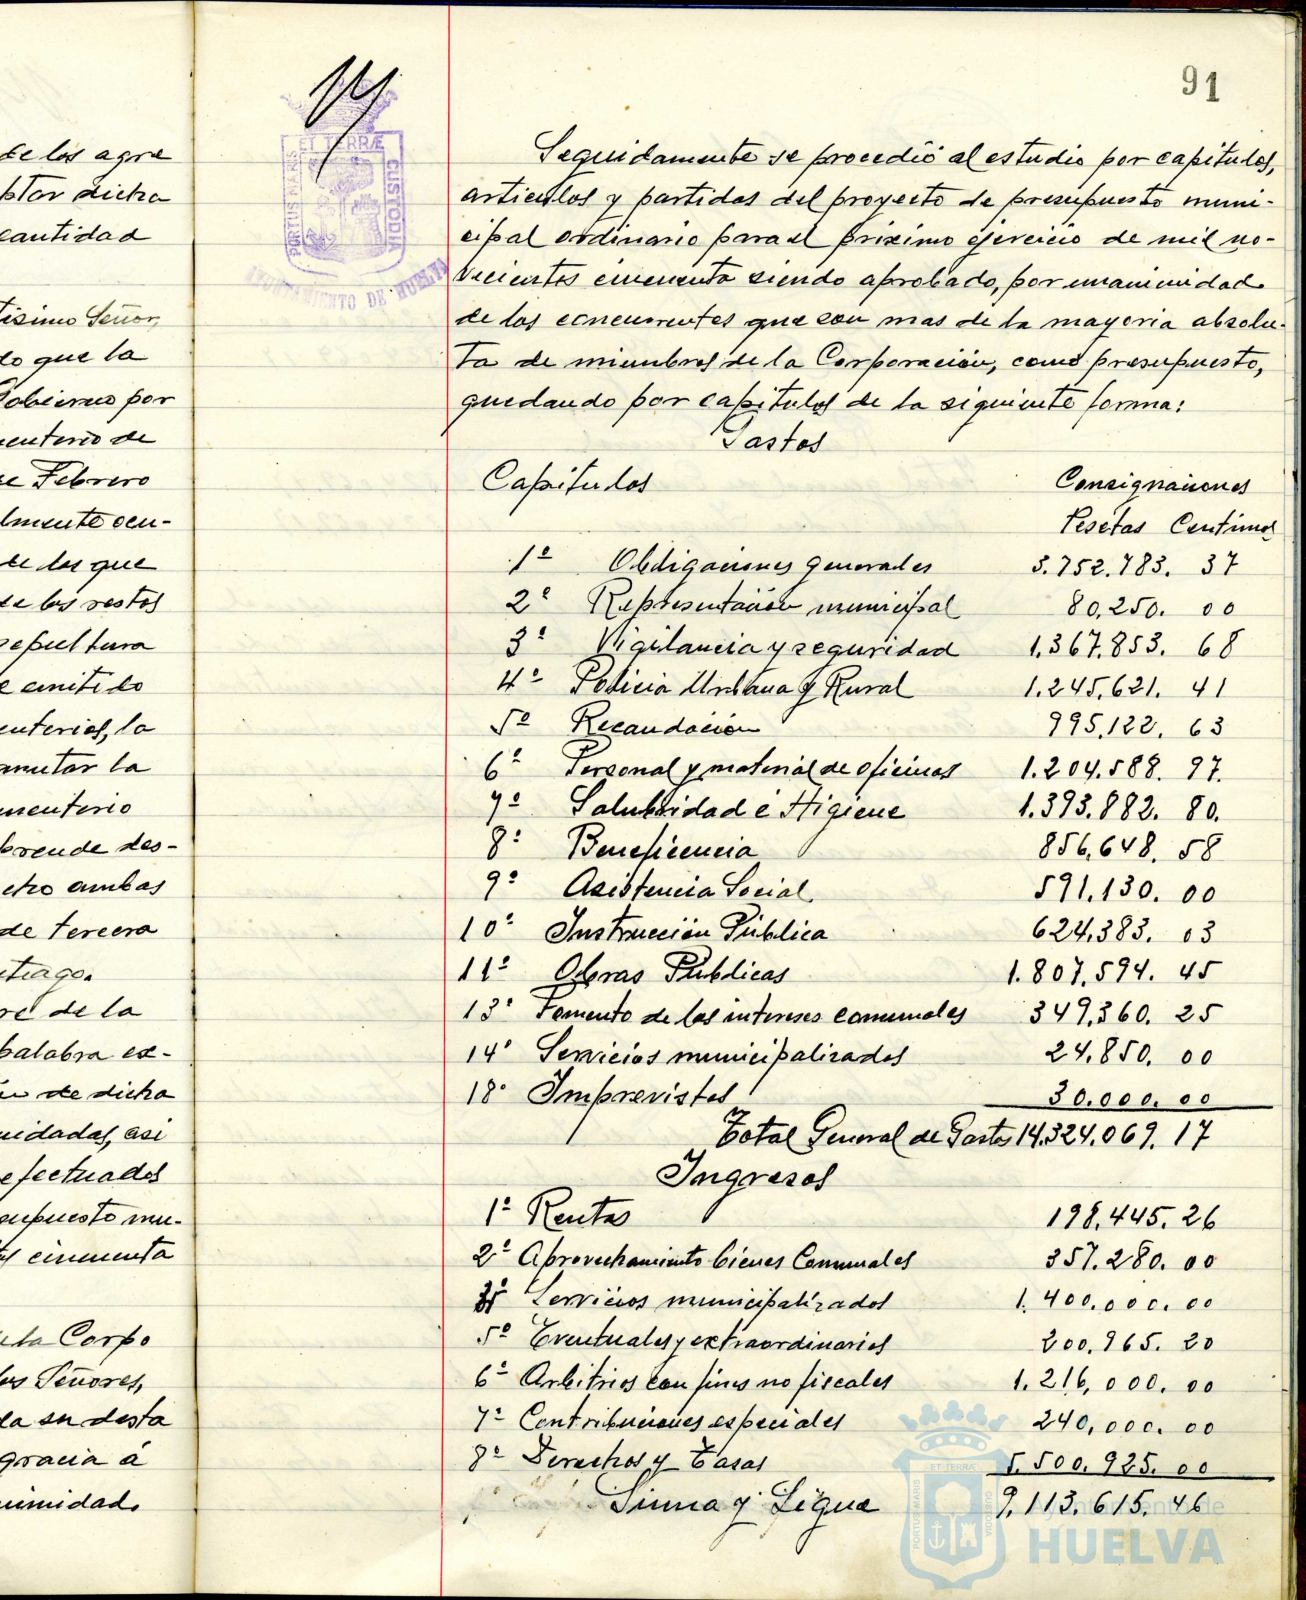 de los agra
ptar dicha
cantidad
tísimo Señor,
do que la
Gobierno por
menterio de
de Febrero
lmente ocu-
de los que
de los restos
sepultura
e emitido
enterios, la
amutar la
menterio
prende des-
ambas
de tercera
ntiago.
re de la
palabra ex-
de dicha
uidadas, asi
efectuados
supuesto mu-
cincuenta
Corpo
los Señores,
da su desta
gracia á
nimidad.
91
PORTUS MARIS ET TERRÆ CUSTODIA
AYUNTAMIENTO DE HUELVA
Seguidamente se procedió al estudio por capitulos,
articulos y partidas del proyecto de presupuesto muni-
cipal ordinario para el próximo ejercicio de mil no-
vecientos cincuenta siendo aprobado, por unanimidad
de los concurrentes que son mas de la mayoria absolu-
ta de miembros de la Corporación, como presupuesto,
quedando por capitulos de la siguiente forma:
Gastos
Capítulos Consignaciones
Pesetas Centimos
1º Obligaciones generales 3.752.783. 37
2º Representación municipal 80.250. 00
3º Vigilancia y seguridad 1.367.853. 68
4º Policia Urbana y Rural 1.245.621. 41
5º Recaudación 995.122. 63
6º Personal y material de oficinas 1.204.588. 97.
7º Salubridad e Higiene 1.393.882. 80.
8º Beneficencia 856.648. 58
9º Asistencia Social 591.130. 00
10º Instrucción Pública 624.383. 03
11º Obras Públicas 1.807.594. 45
13º Fomento de los intereses comunales 349.360. 25
14º Servicios municipalizados 24.850. 00
18º Imprevistos 30.000. 00
Total General de Gastos 14.324.069. 17
Ingresos
1º Rentas 198.445. 26
2º Aprovechamiento bienes Comunales 357.280. 00
3º Servicios municipalizados 1.400.000. 00
5º Eventuales y extraordinarios 200.965. 20
6º Arbitrios con fines no fiscales 1.216.000. 00
7º Contribuciones especiales 240.000. 00
8º Derechos y Tasas 5.500.925. 00
Suma y Sigue 9.113.615. 46
PORTUS MARIS ET TERRÆ CUSTODIA
Ayuntamiento de
HUELVA